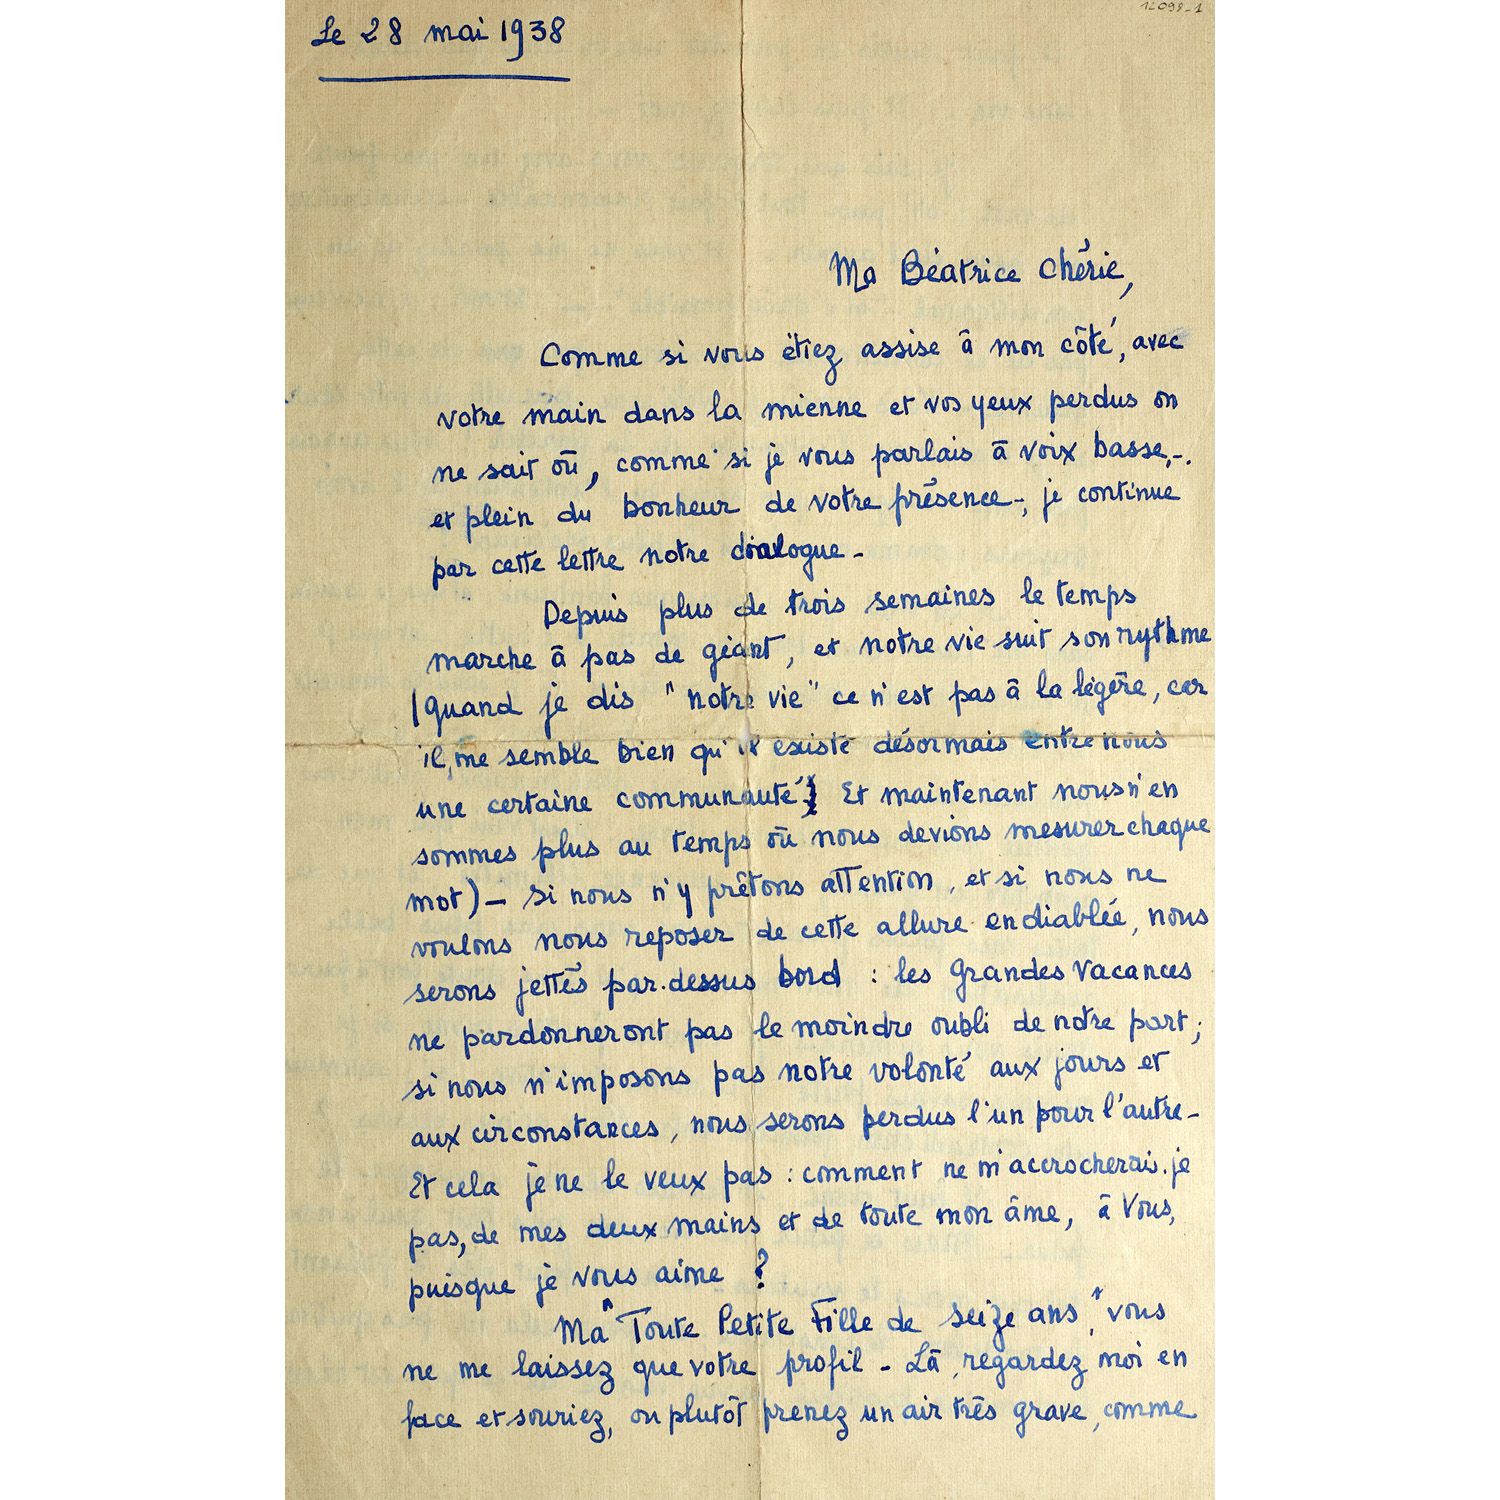 12098-1
Le 28 mai 1938
Ma Béatrice Chérie,
Comme si vous étiez assise à mon côté, avec
votre main dans la mienne et vos yeux perdus on
ne sait où, comme si je vous parlais à voix basse,-.
et plein du bonheur de votre présence-, je continue
par cette lettre notre dialogue -
Depuis plus de trois semaines le temps
marche à pas de géant, et notre vie suit son rythme
(quand je dis "notre vie" ce n'est pas à la légère, car
il me semble bien qu'il existe désormais entre nous
une certaine communauté. Et maintenant nous n'en
sommes plus au temps où nous devions mesurer chaque
mot) - Si nous n'y prêtons attention, et si nous ne
voulons nous reposer de cette allure endiablée, nous
serons jettés par-dessus bord : les Grandes Vacances
ne pardonneront pas le moindre oubli de notre part;
si nous n'imposons pas notre volonté aux jours et
aux circonstances, nous serons perdus l'un pour l'autre -
Et cela je ne le veux pas : comment ne m'accrocherai-je
pas, de mes deux mains et de toute mon âme, à Vous,
puisque je vous aime ?
Ma "Toute Petite Fille de seize ans", vous
ne me laissez que votre profil - Là, regardez moi en
face et souriez, ou plutôt prenez un air très grave, comme